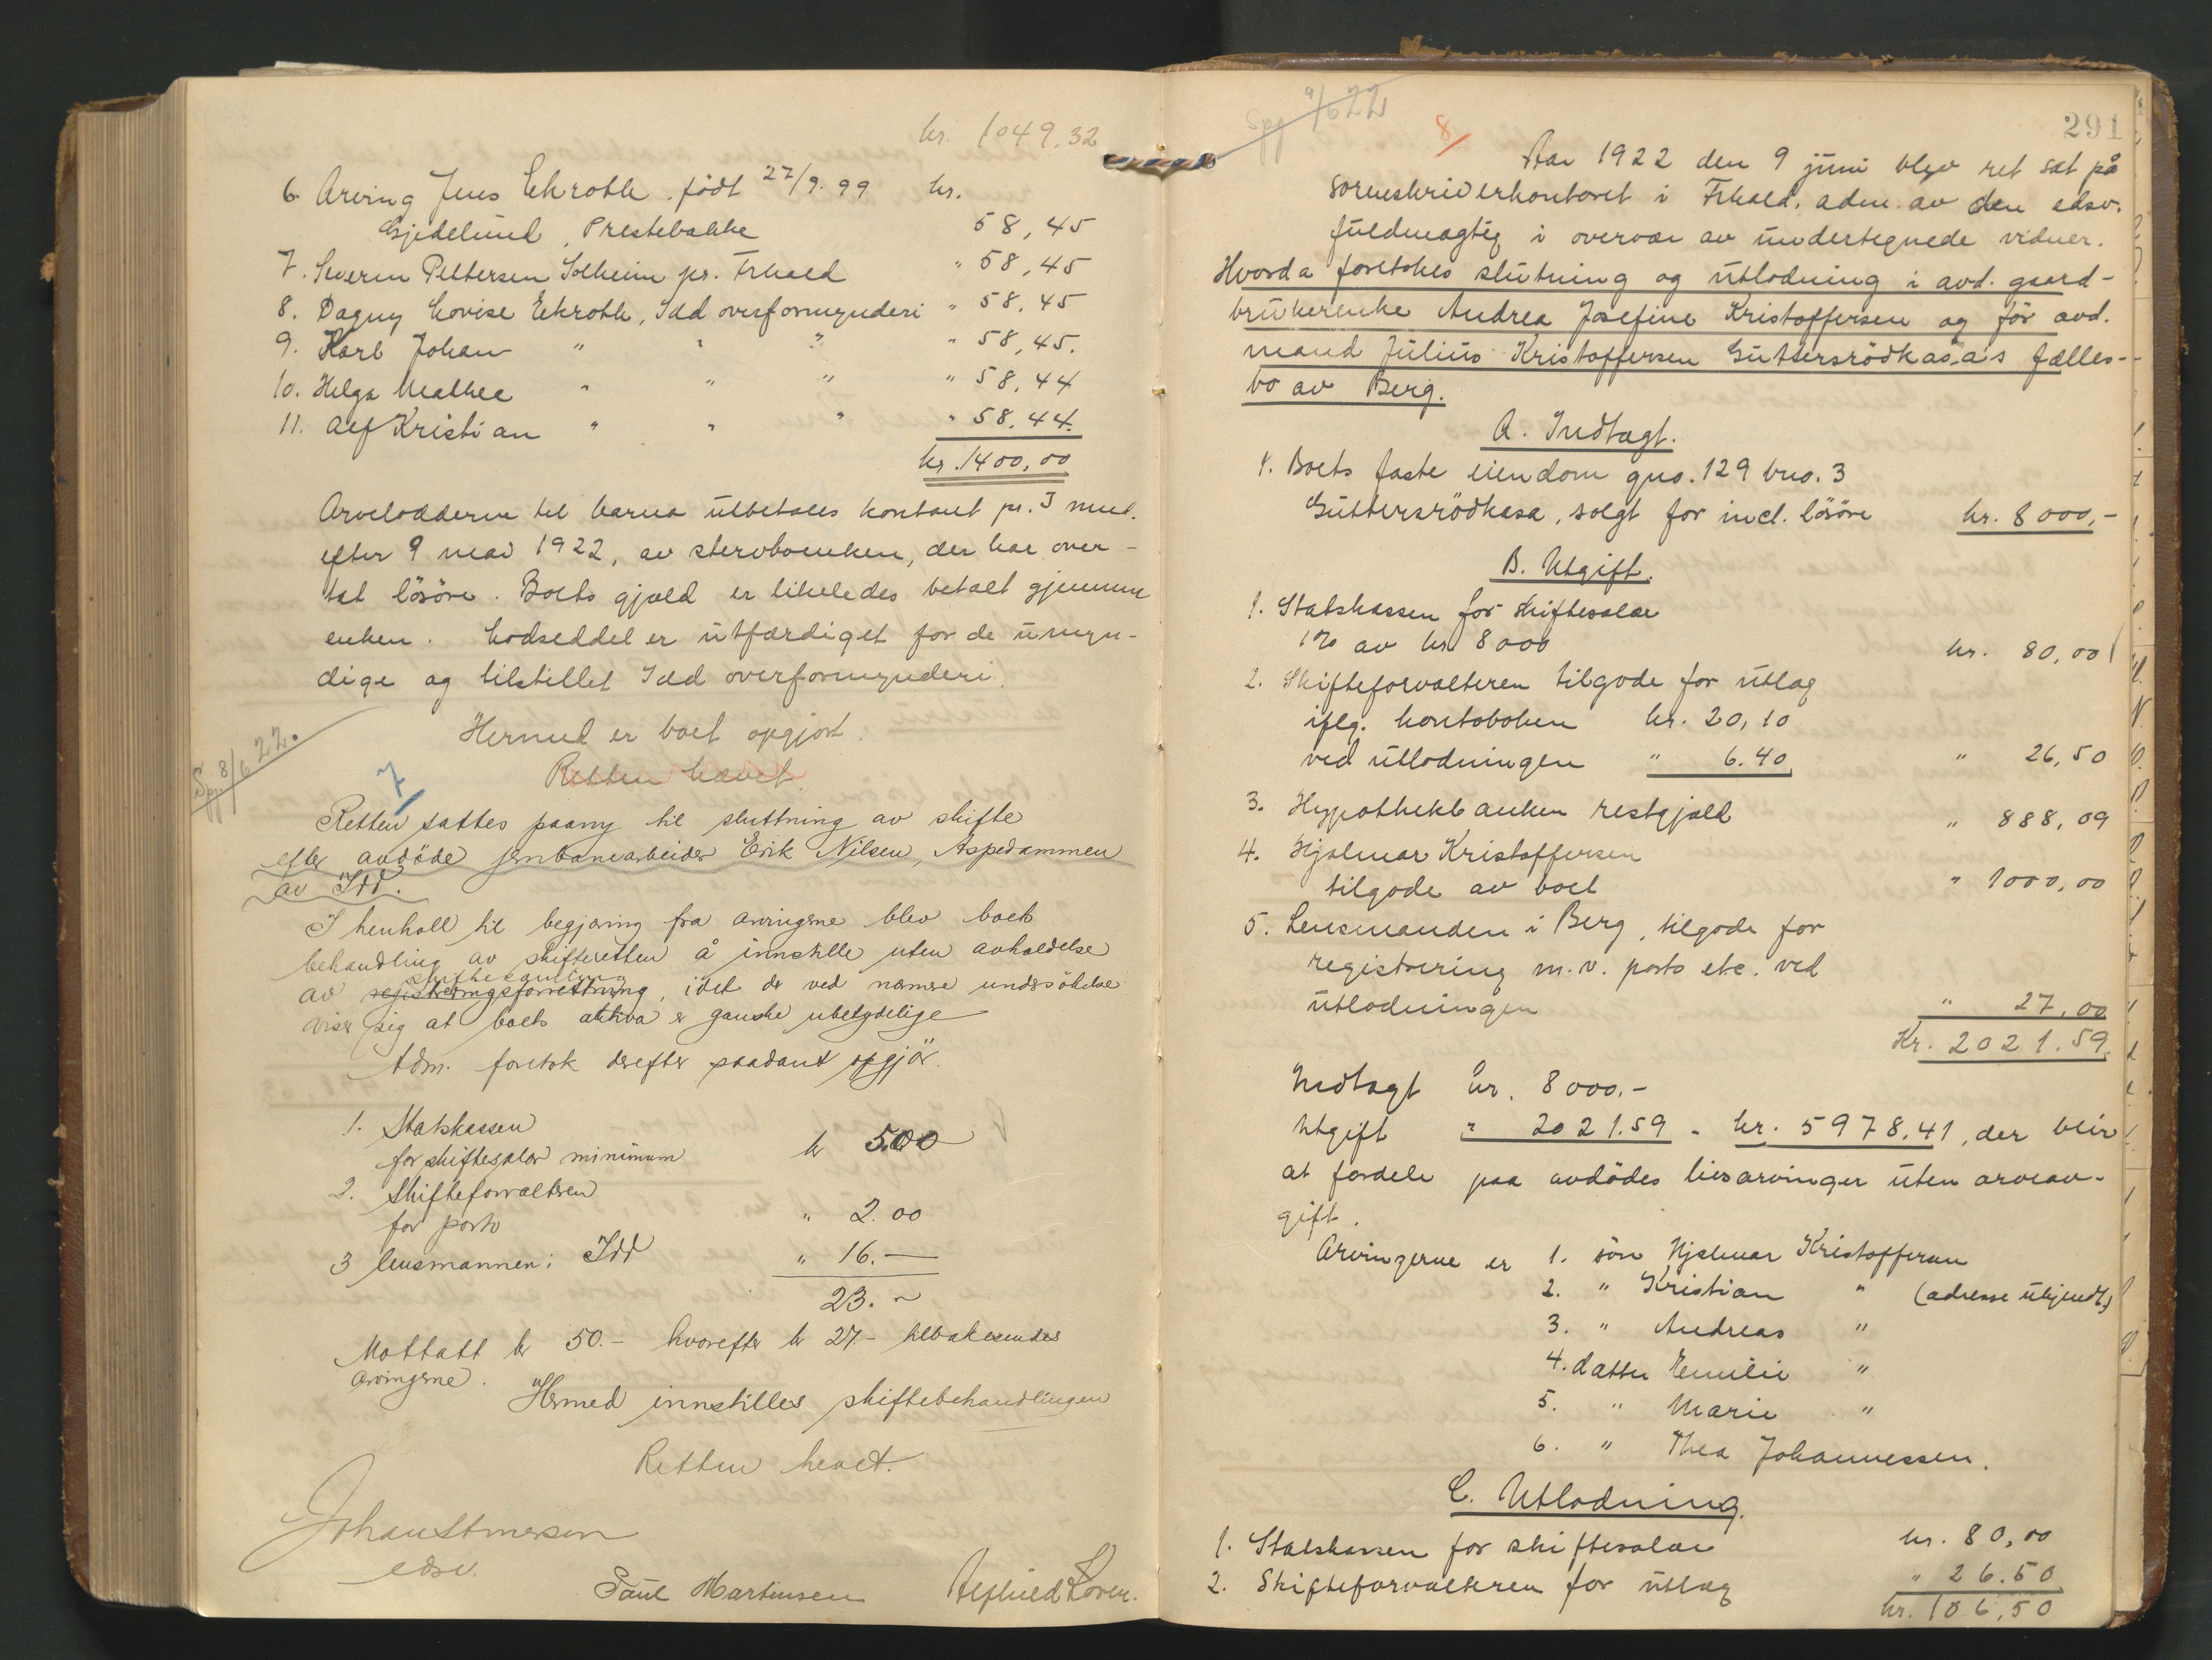 kr. 1049.32
6. Arving Jens Ekroth. født 27/9. 99 kr.
Gjedelund, Prestebakke 58,45
7. Severin Pettersen Solheim pr. Frhald " 58,45
8. Dagny Lovise Ekroth, Idd overformynderi " 58,45
9. Karl Johan " " " " 58,45.
10. Helga Mathee " " " " 58,44
11. Alf Kristian " " " " 58,44.
kr. 1400,00
Arvelodderne til barna utbetales kontant pr. 3 mnd.
efter 9 mai 1922, av stervboenken, der har over-
tat løsøre. Boets gjæld er likeledes betalt gjennem
enken. Lodseddel er utfærdiget for de umyn-
dige og tilstillet Idd overformynderi.
Hermed er boet opgjort.
Retten hævet.
Spg 8/6 22.
7
Retten sattes paany til sluttning av skifte
efter avdøde jernbanearbeider Erik Nilsen, Aspedammen
av Idd.
I henhold til begjæring fra arvingerne blev boets
behandling av skifteretten å innstille uten avholdelse
skiftesamling
av registreringsforrettning, idet de ved nærmere undersøkelse
viser sig at boets aktiva er ganske ubetydelige
Adm. foretok derefter saadant opgjør.
1. Statskassen
for skiftesalær minimum kr 5.00
2. Skifteforvalteren
for porto " 2.00
3 lensmannen i Idd " 16.—
23.—
Mottatt kr 50.— hvorefter kr 27.— tilbakesendes
arvingerne.
Hermed innstilles skiftebehandlingen
Retten hevet.
edsv.
Paul Martinsen
Spg 9/6 22
8
291
Aar 1922 den 9 juni blev ret sat på
sorenskriverkontoret i Frhald, adm. av den edsv.
fuldmægtig i overvær av undertegnede vidner.
Hvorda foretokes slutning og utlodning i avd. gaard-
brukerenke Andrea Josefine Kristoffersen og før avd.
mand Julius Kristoffersen Guttersrödkasa's fælles-
bo av Berg.
A. Indtægt.
1. Boets faste eiendom gno. 129 bno. 3
Guttersrödkasa, solgt for incl. lösöre kr. 8000,-
B. Utgift.
1. Statskassen for skiftesalær
1% av kr 8000 kr. 80,00
2. Skifteforvalteren tilgode for utlæg
iflg. kontoboken kr. 20,10
ved utlodningen " 6.40 " 26,50
3. Hypothekbanken restgjæld " 888,09
4. Hjalmar Kristoffersen
tilgode av boet " 1000,00
5. Lensmanden i Berg, tilgode for
registrering m.v. porto etc. ved
utlodningen " 27,00
Kr. 2021.59.
Indtægt kr. 8000.-
Utgift " 2021.59 - kr. 5978.41, der blir
at fordele paa avdödes livsarvinger uten arveav-
gift.
Arvingerne er 1. sön Hjalmar Kristoffersen
2. " Kristian " (adresse ukjendt)
3. " Andreas "
4. datter Emilie "
5. " Marie "
6. " Thea Johannessen.
C. Utlodning.
1. Statskassen for skiftesalær kr. 80,00
2. Skifteforvalteren for utlæg " 26.50
kr. 106,50